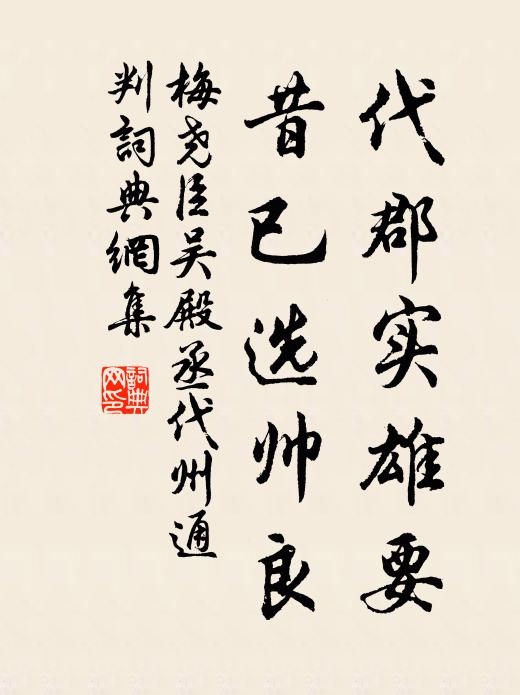 代郡实雄要
昔已选帅良
梅尧臣吴殿丞代州通
判詞典網集
詞典
网印